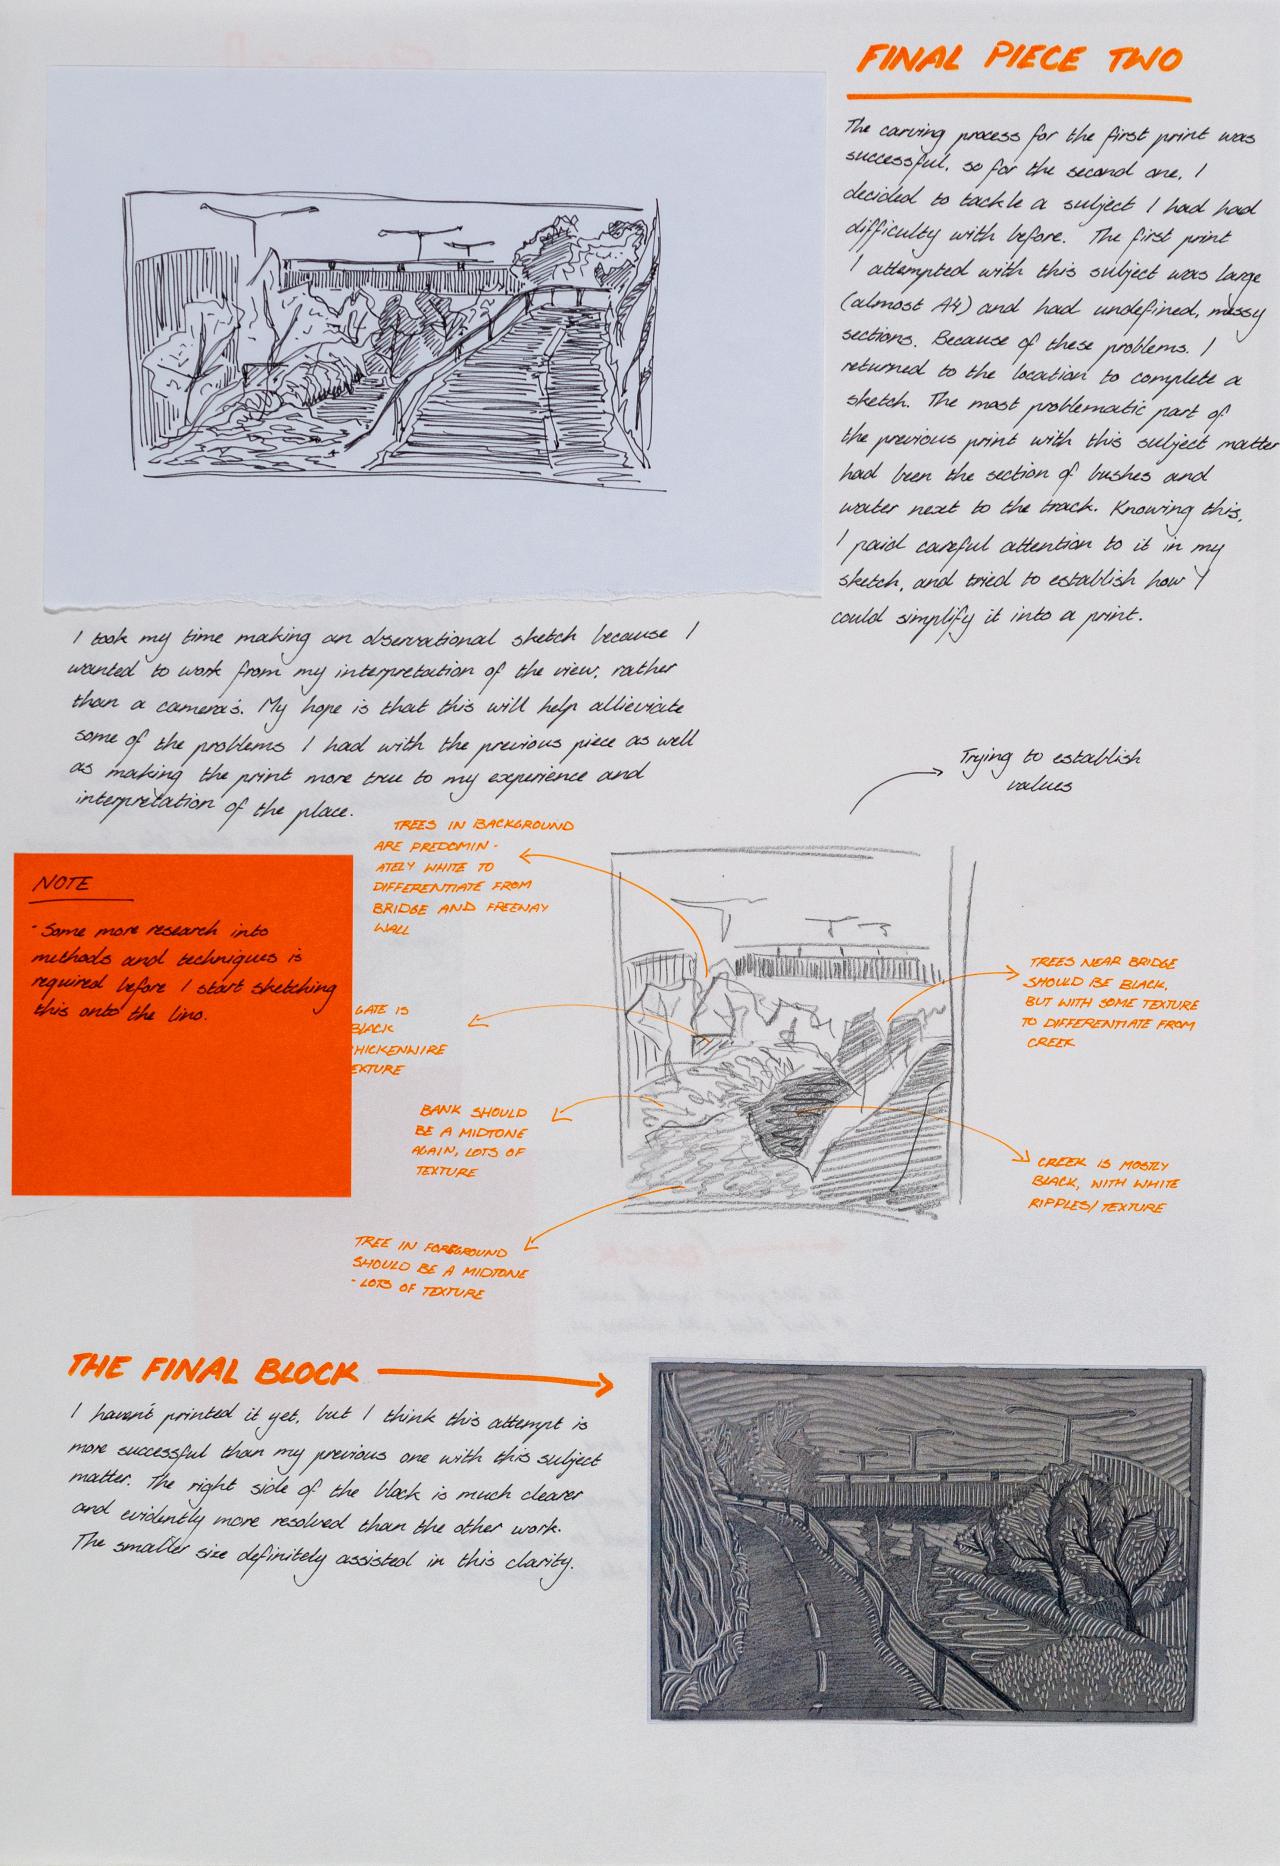 FINAL PIECE TWO
The carving process for the first print was
successful, so for the second one, I
decided to tackle a subject I had had
difficulty with before. The first print
I attempted with this subject was large
(almost A4) and had undefined, messy
sections. Because of these problems, I
returned to the location to complete a
sketch. The most problematic part of
the previous print with this subject matter
had been the section of bushes and
water next to the track. Knowing this,
I paid careful attention to it in my
sketch, and tried to establish how I
could simplify it into a print.
I took my time making an observational sketch because I
wanted to work from my interpretation of the view, rather
than a camera's. My hope is that this will help allieviate
some of the problems I had with the previous piece as well
as making the print more true to my experience and
interpretation of the place.
Trying to establish
values
TREES IN BACKGROUND
ARE PREDOMIN-
ATELY WHITE TO
DIFFERENTIATE FROM
BRIDGE AND FREEWAY
WALL
NOTE
- Some more research into
methods and techniques is
required before I start sketching
this onto the lino.
GATE IS
BLACK
HICKENWIRE
EXTURE
TREES NEAR BRIDGE
SHOULD BE BLACK,
BUT WITH SOME TEXTURE
TO DIFFERENTIATE FROM
CREEK
BANK SHOULD
BE A MIDTONE
AGAIN, LOTS OF
TEXTURE
CREEK IS MOSTLY
BLACK, WITH WHITE
RIPPLES/TEXTURE
TREE IN FOREGROUND
SHOULD BE A MIDTONE
- LOTS OF TEXTURE
THE FINAL BLOCK
I haven't printed it yet, but I think this attempt is
more successful than my previous one with this subject
matter. The right side of the block is much clearer
and evidently more resolved than the other work.
The smaller size definitely assisted in this clarity.